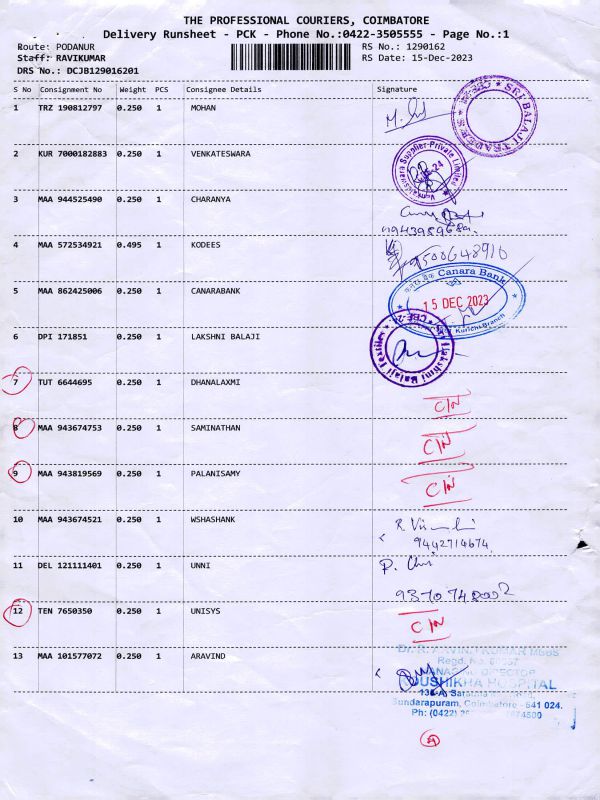 THE PROFESSIONAL COURIERS, COIMBATORE
Delivery Runsheet - PCK - Phone No.:0422-3505555 - Page No.:1
Route: PODANUR
RS No.: 1290162
Staff: RAVIKUMAR
RS Date: 15-Dec-2023
DRS No.: DCJB129016201
S No Consignment No Weight PCS Consignee Details Signature
1 TRZ 190812797 0.250 1 MOHAN
SRI BALAJI TRADERS
2 KUR 7000182883 0.250 1 VENKATESWARA
Supplier-Private Limited
3 MAA 944525490 0.250 1 CHARANYA
4 MAA 572534921 0.495 1 KODEES 9500648910
5 MAA 862425006 0.250 1 CANARABANK
Canara Bank
15 DEC 2023
Kurichi Branch
6 DPI 171851 0.250 1 LAKSHNI BALAJI
Lakshmi Balaji Textiles
CBE-24
7 TUT 6644695 0.250 1 DHANALAXMI C/N
8 MAA 943674753 0.250 1 SAMINATHAN C/N
9 MAA 943819569 0.250 1 PALANISAMY C/N
10 MAA 943674521 0.250 1 WSHASHANK
9442714674
11 DEL 121111401 0.250 1 UNNI
12 TEN 7650350 0.250 1 UNISYS C/N
13 MAA 101577072 0.250 1 ARAVIND
Dr. R. ARVIND KUMAR MBBS
Regd. No.
DIRECTOR
HOSPITAL
Sundarapuram, Coimbatore - 641 024.
Ph: (0422)